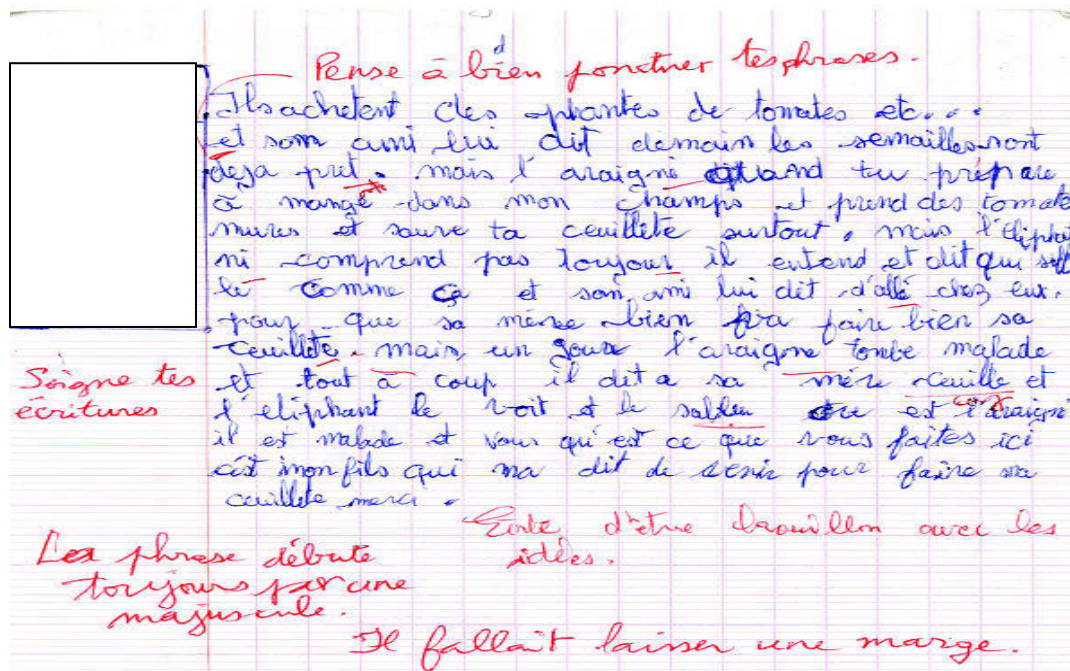 Pense à bien ponctuer tes phrases.
Ils achetent des plantes de tomates etc...
et som ami lui dit demain les semailles sont
deja prêt. mais l'araigné quand tu prépare
à mangé dans mon champs et prend des tomate
mures et sauve ta ceuillete surtout, mais l'éliphat
ni comprend pas toujour il entend et dit qui
le comme ça et son ami lui dit d'allé chez eux.
pour que sa mère bien faire bien sa
ceuilleté. mais un jour l'araigne tombe malade
Soigne tes et tout à coup il dit a sa mère ceuille et
écritures l'eliphant le voit et le est l'araigné
il est malade et vous qu'est ce que vous faites ici
c'est mon fils qui ma dit de venir pour faire sa
ceuillete merci.
Evite d'être brouillon avec les
idées.
La phrase débute
toujours par une
majuscule.
Il fallait laisser une marge.